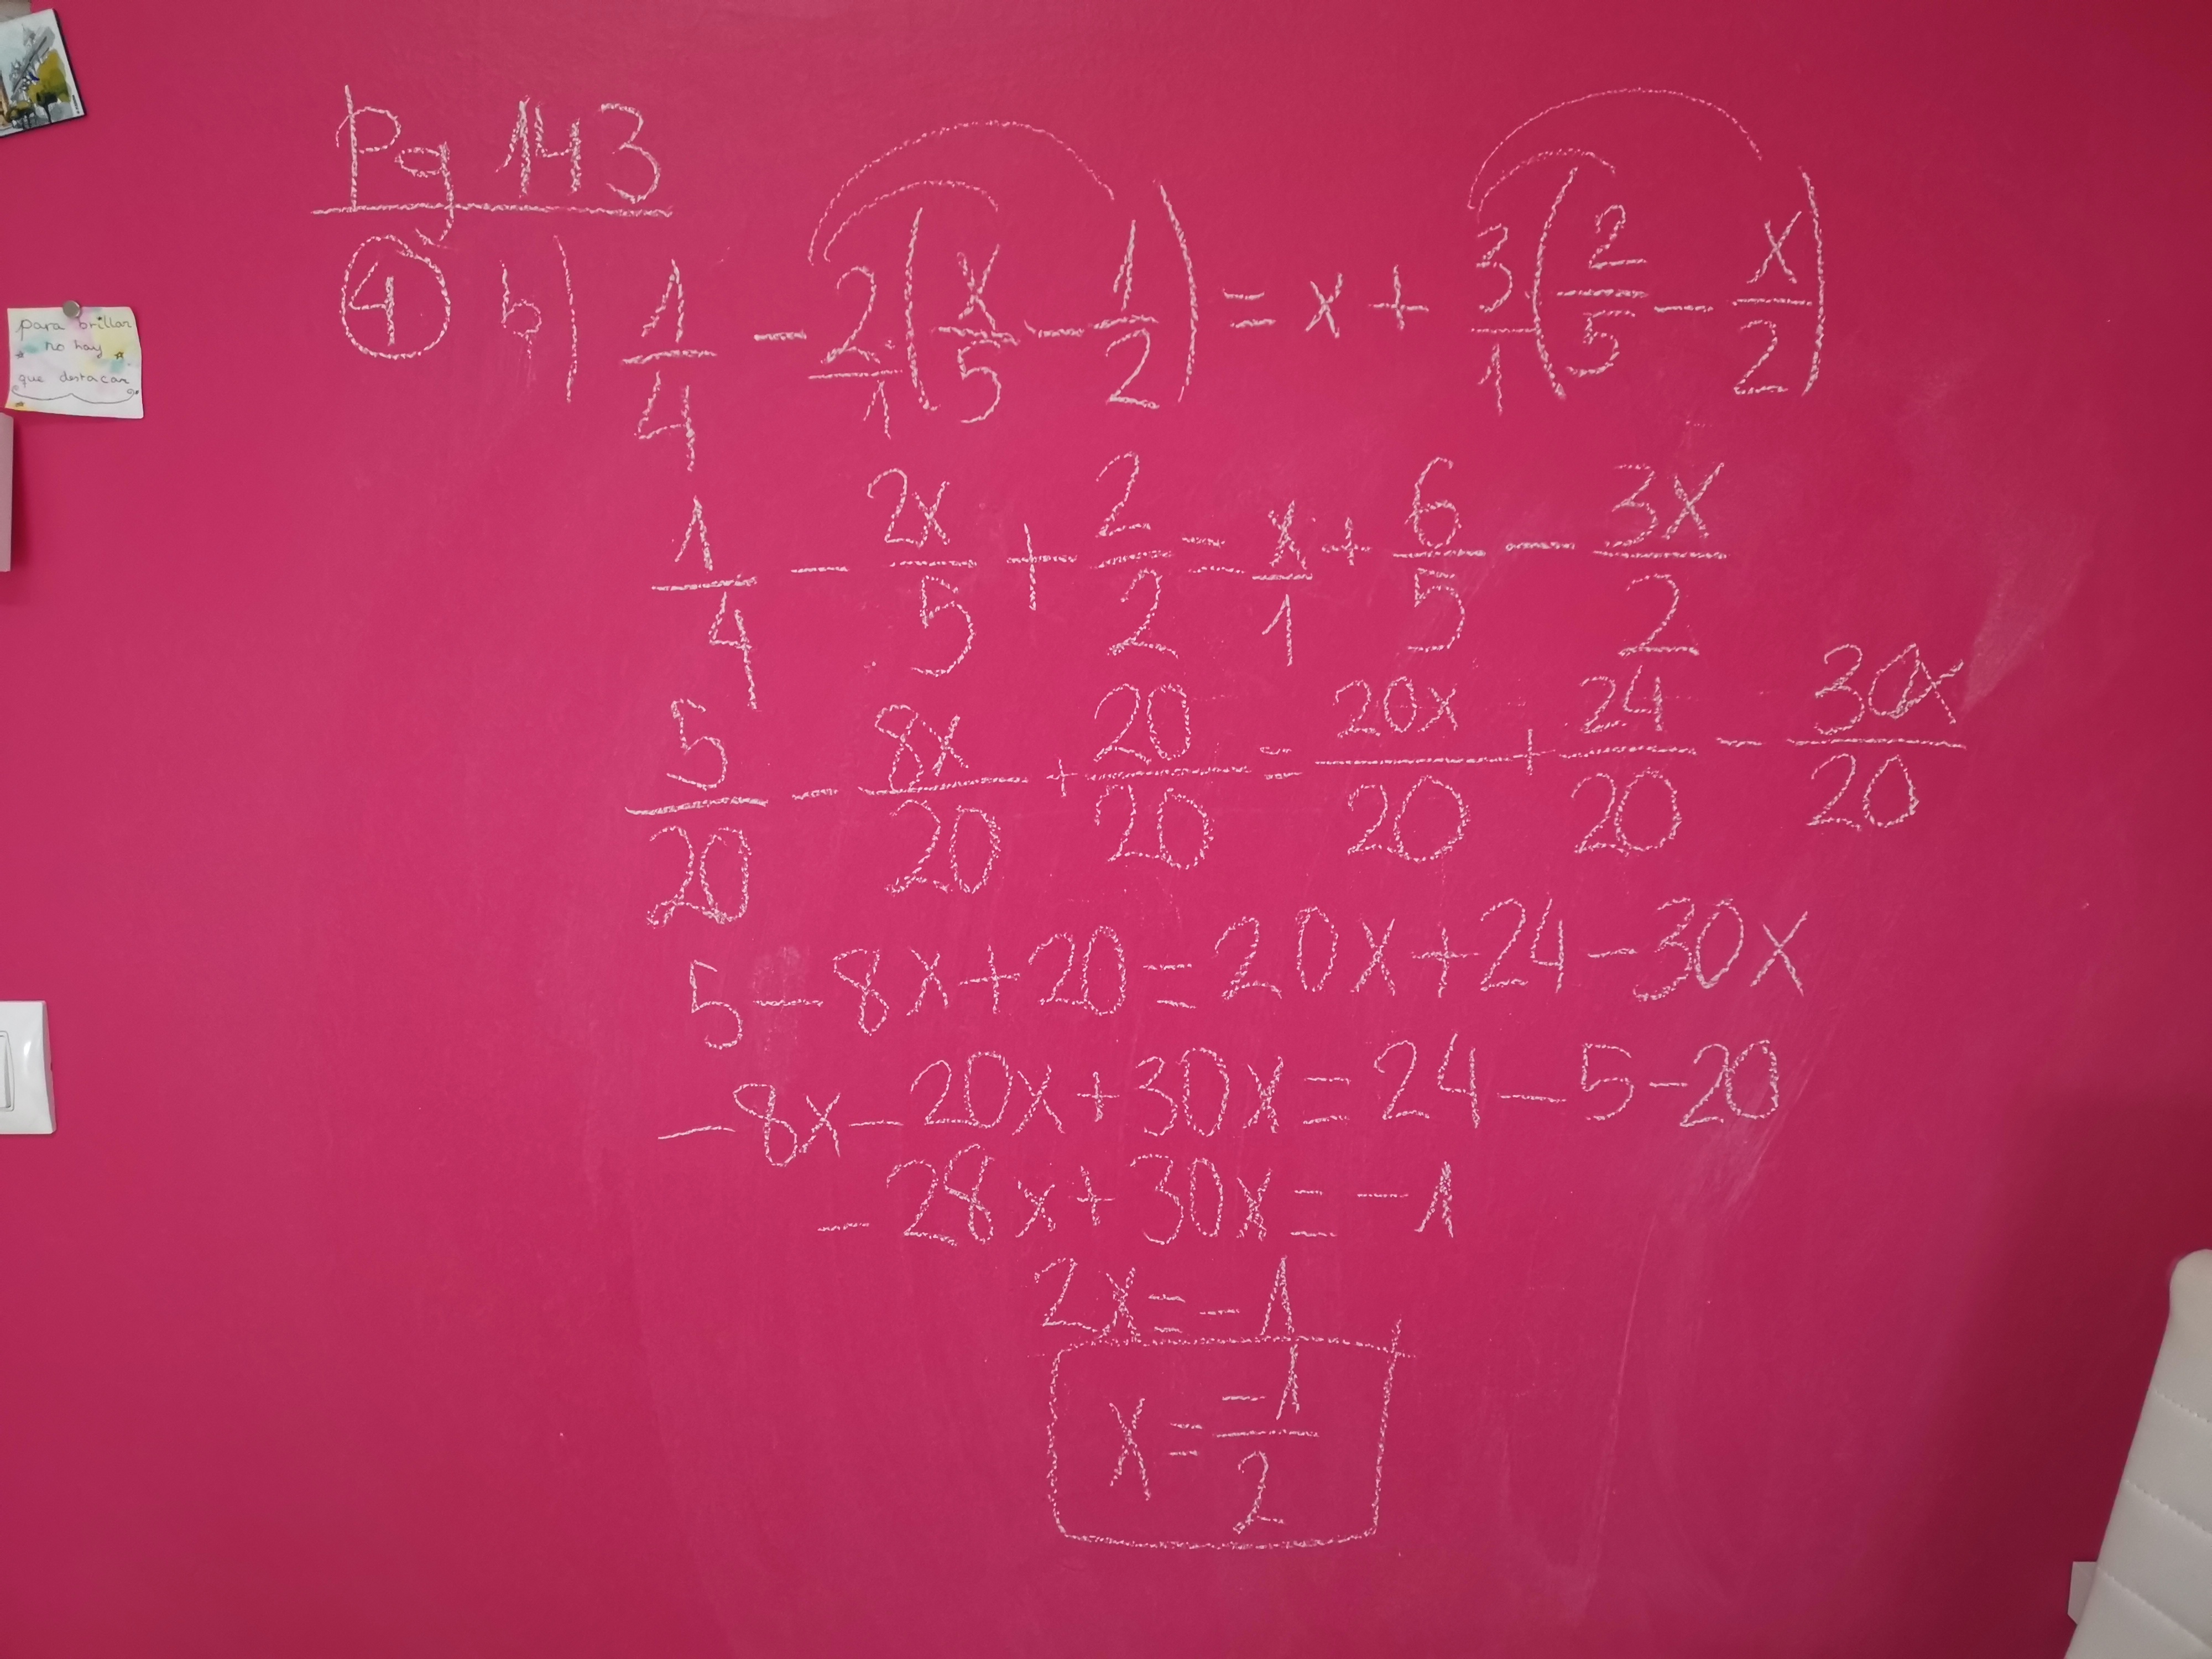 para brillar
no hay
que destacar
Pg 143
4 b) 1/4 - 2/1 (x/5 - 1/2) = x + 3/1 (2/5 - x/2)
1/4 - 2x/5 + 2/2 = x/1 + 6/5 - 3x/2
5/20 - 8x/20 + 20/20 = 20x/20 + 24/20 - 30x/20
5 - 8x + 20 = 20x + 24 - 30x
-8x - 20x + 30x = 24 - 5 - 20
-28x + 30x = -1
2x = -1
x = -1/2